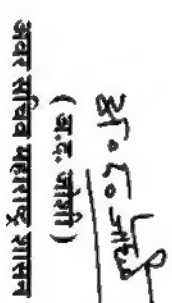 अ. द. जोशी
( अ.द. जोशी )
अवर सचिव महाराष्ट्र शासन